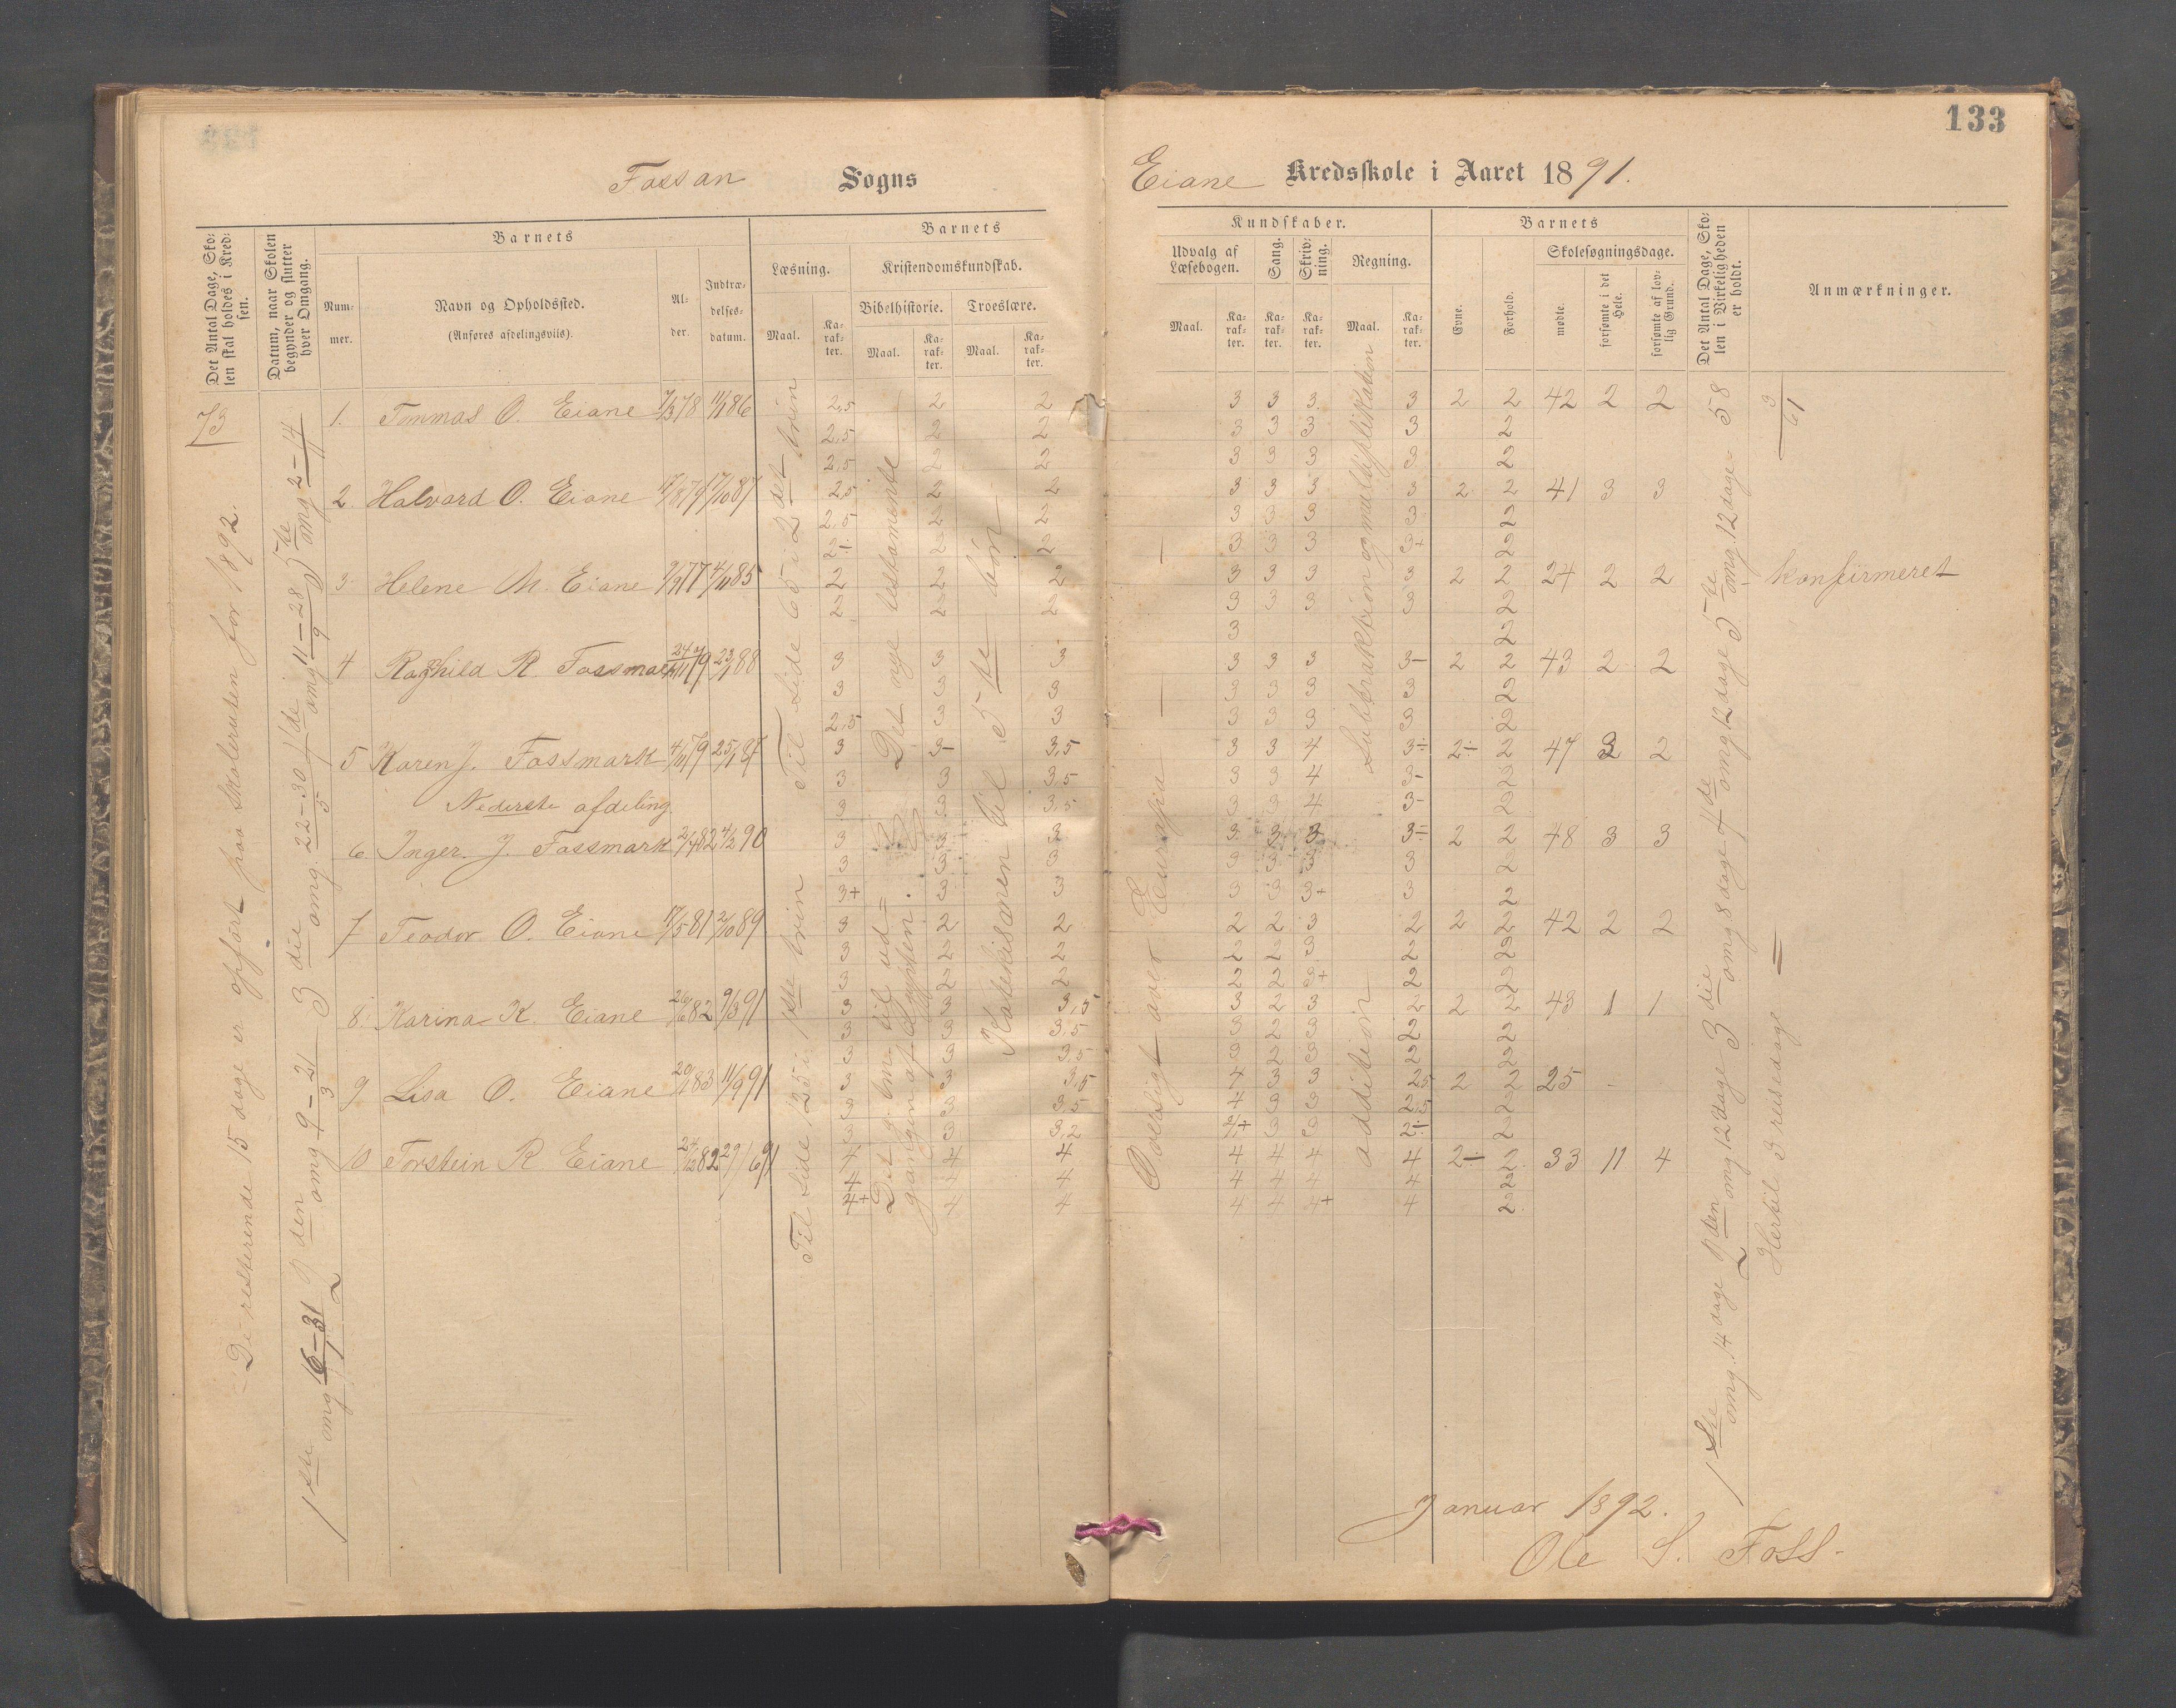 133
Fossan Sogns
Eiane Kredsskole i Aaret 1891.
Det Antal Dage, Skolen skal holdes i Kredsen.
Datum, naar Skolen begynder og slutter hver Omgang.
Barnets
Nummer.
Navn og Opholdssted.
(Anføres afdelingsviis).
Alder.
Indtrædelsesdatum.
Barnets
Læsning.
Maal.
Karakter.
Kristendomskundskab.
Bibelhistorie.
Maal.
Karakter.
Troeslære.
Maal.
Karakter.
Kundskaber.
Udvalg af Læsebogen.
Maal.
Karakter.
Sang.
Karakter.
Skrivning.
Karakter.
Regning.
Maal.
Karakter.
Barnets
Evne.
Forhold.
Skolesøgningsdage.
mødte.
forsømte i det Hele.
forsømte af lovlig Grund.
Det Antal Dage, Skolen i Virkeligheden er holdt.
Anmærkninger.
73
De resterende 15 dage er opført paa skoleruten for 1892.
1ste omg 16-31/1 2den omg 9-21/3 3die omg. 22-30/5 4de omg 11-28/9 5te omg 2-14
1. Tommas O. Eiane 7/3 78 11/1 86 2,5 2 2 3 3 3 3 2 2 42 2 2
2,5 2 2 3 3 3 3 2
2,5 2 2 3 3 3 3 2
2. Halvard O. Eiane 87 2,5 2 2 3 3 3 3 2 2 41 3 3
2,5 2 2 3 3 3 3 2
2÷ 2 2 3 3 3 3+ 2
3 Helene M. Eiane 77 4/11 85 2 2 2 3 3 3 3 2 2 24 2 2 Konfirmeret
2 2 2 3 3 3 3 2
3 2
4 Raghild R. Fossmark 79 88 3 3 3 3 3 3 3- 2 2 43 2 2
3 3 3 3 3 3 3 2
2,5 3 3 3 3 3 3 2
5 Karen J. Fossmark 4/11 79 25/1 87 3 3- 3,5 3 3 4 3÷ 2÷ 2 47 2 2
3 3 3,5 3 3 4 3- 2
3 3 3,5 3 3 4 3- 2
Nederste afdeling
6 Inger. J. Fossmark 2/4 82 4/2 90 3 3 3 3 3 3 3÷ 2 2 48 3 3
3 3 3 3 3 3 3 2
3+ 3 3 3 3 3+ 3 2
7 Teodor O. Eiane 17/5 81 2/10 89 3 2 2 2 2 3 2 2 2 42 2 2
3 2 2 2 2 3 2 2
3 2 2 2 2 3+ 2 2
8. Karina K. Eiane 26/6 82 9/3 91 3 3 3,5 3 2 3 2 2 2 43 1 1
3 3 3,5 3 2 3 2 2
3 3 3,5 3 2 3 2 2
9 Lisa O. Eiane 83 11/9 91 3 3 3,5 4 3 3 2,5 2 2 25 -
3 3 3,5 4 3 3 2,5 2
3 3 3,2 4+ 3 3 2÷ 2
10 Torstein R Eiane 24/12 82 91 4 4 4 4 4 4 4 2÷ 2 33 11 4
4 4 4 4 4 4 4 2
4+ 4 4 4 4 4+ 4 2
Til side 65 i 2det trin
Til side 125 i 1ste trin
Det nye testamente
Det g. tm. til udgangen af Egypten.
Katekismen til 5te bøn
Oversigt over Europa
Subbtraktion og multiplikation
addition
1ste omg. 14 dage 2den omg 12 dage 3die omg 8 dage 4de omg 12 dage 5te omg. 12 dage = 58
3
61
Hertil 3 reisedage =
Januar 1892.
Ole S. Foss.